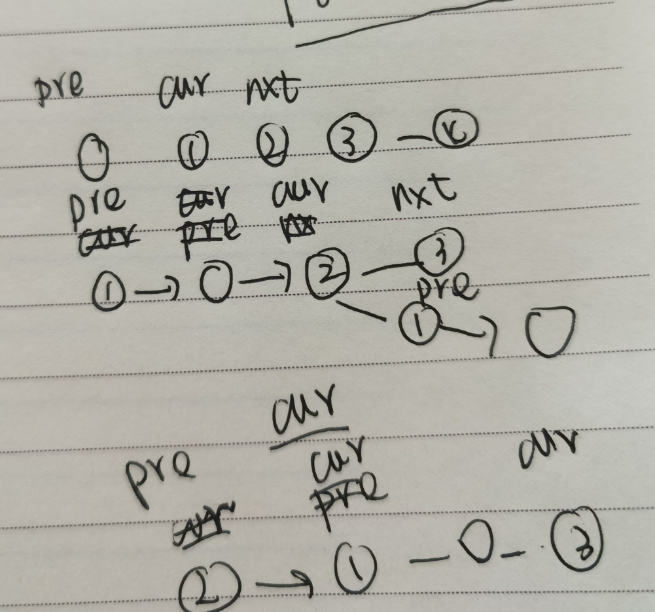 pre cur nxt
① ② ③ - ⓚ
pre cur cur nxt
cur pre nx
① → ○ → ② - ③
pre
① → ○
cur
pre cur cur
cur pre
② → ① - ○ - ③